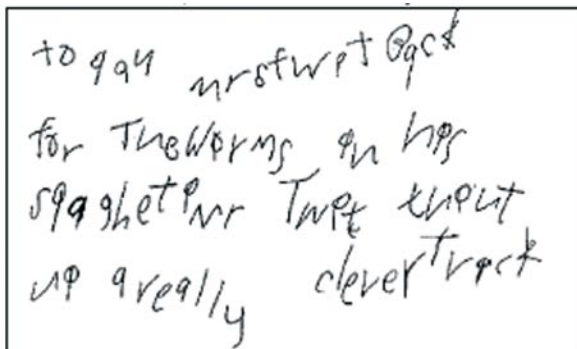 to qay mrstwit Back
for The Worms in his
spaghetti Mr Twit thout
up a really clever Track